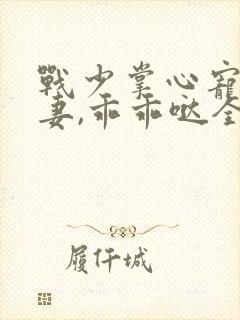 戰少掌心寵
妻,乖乖哒全
履仟城